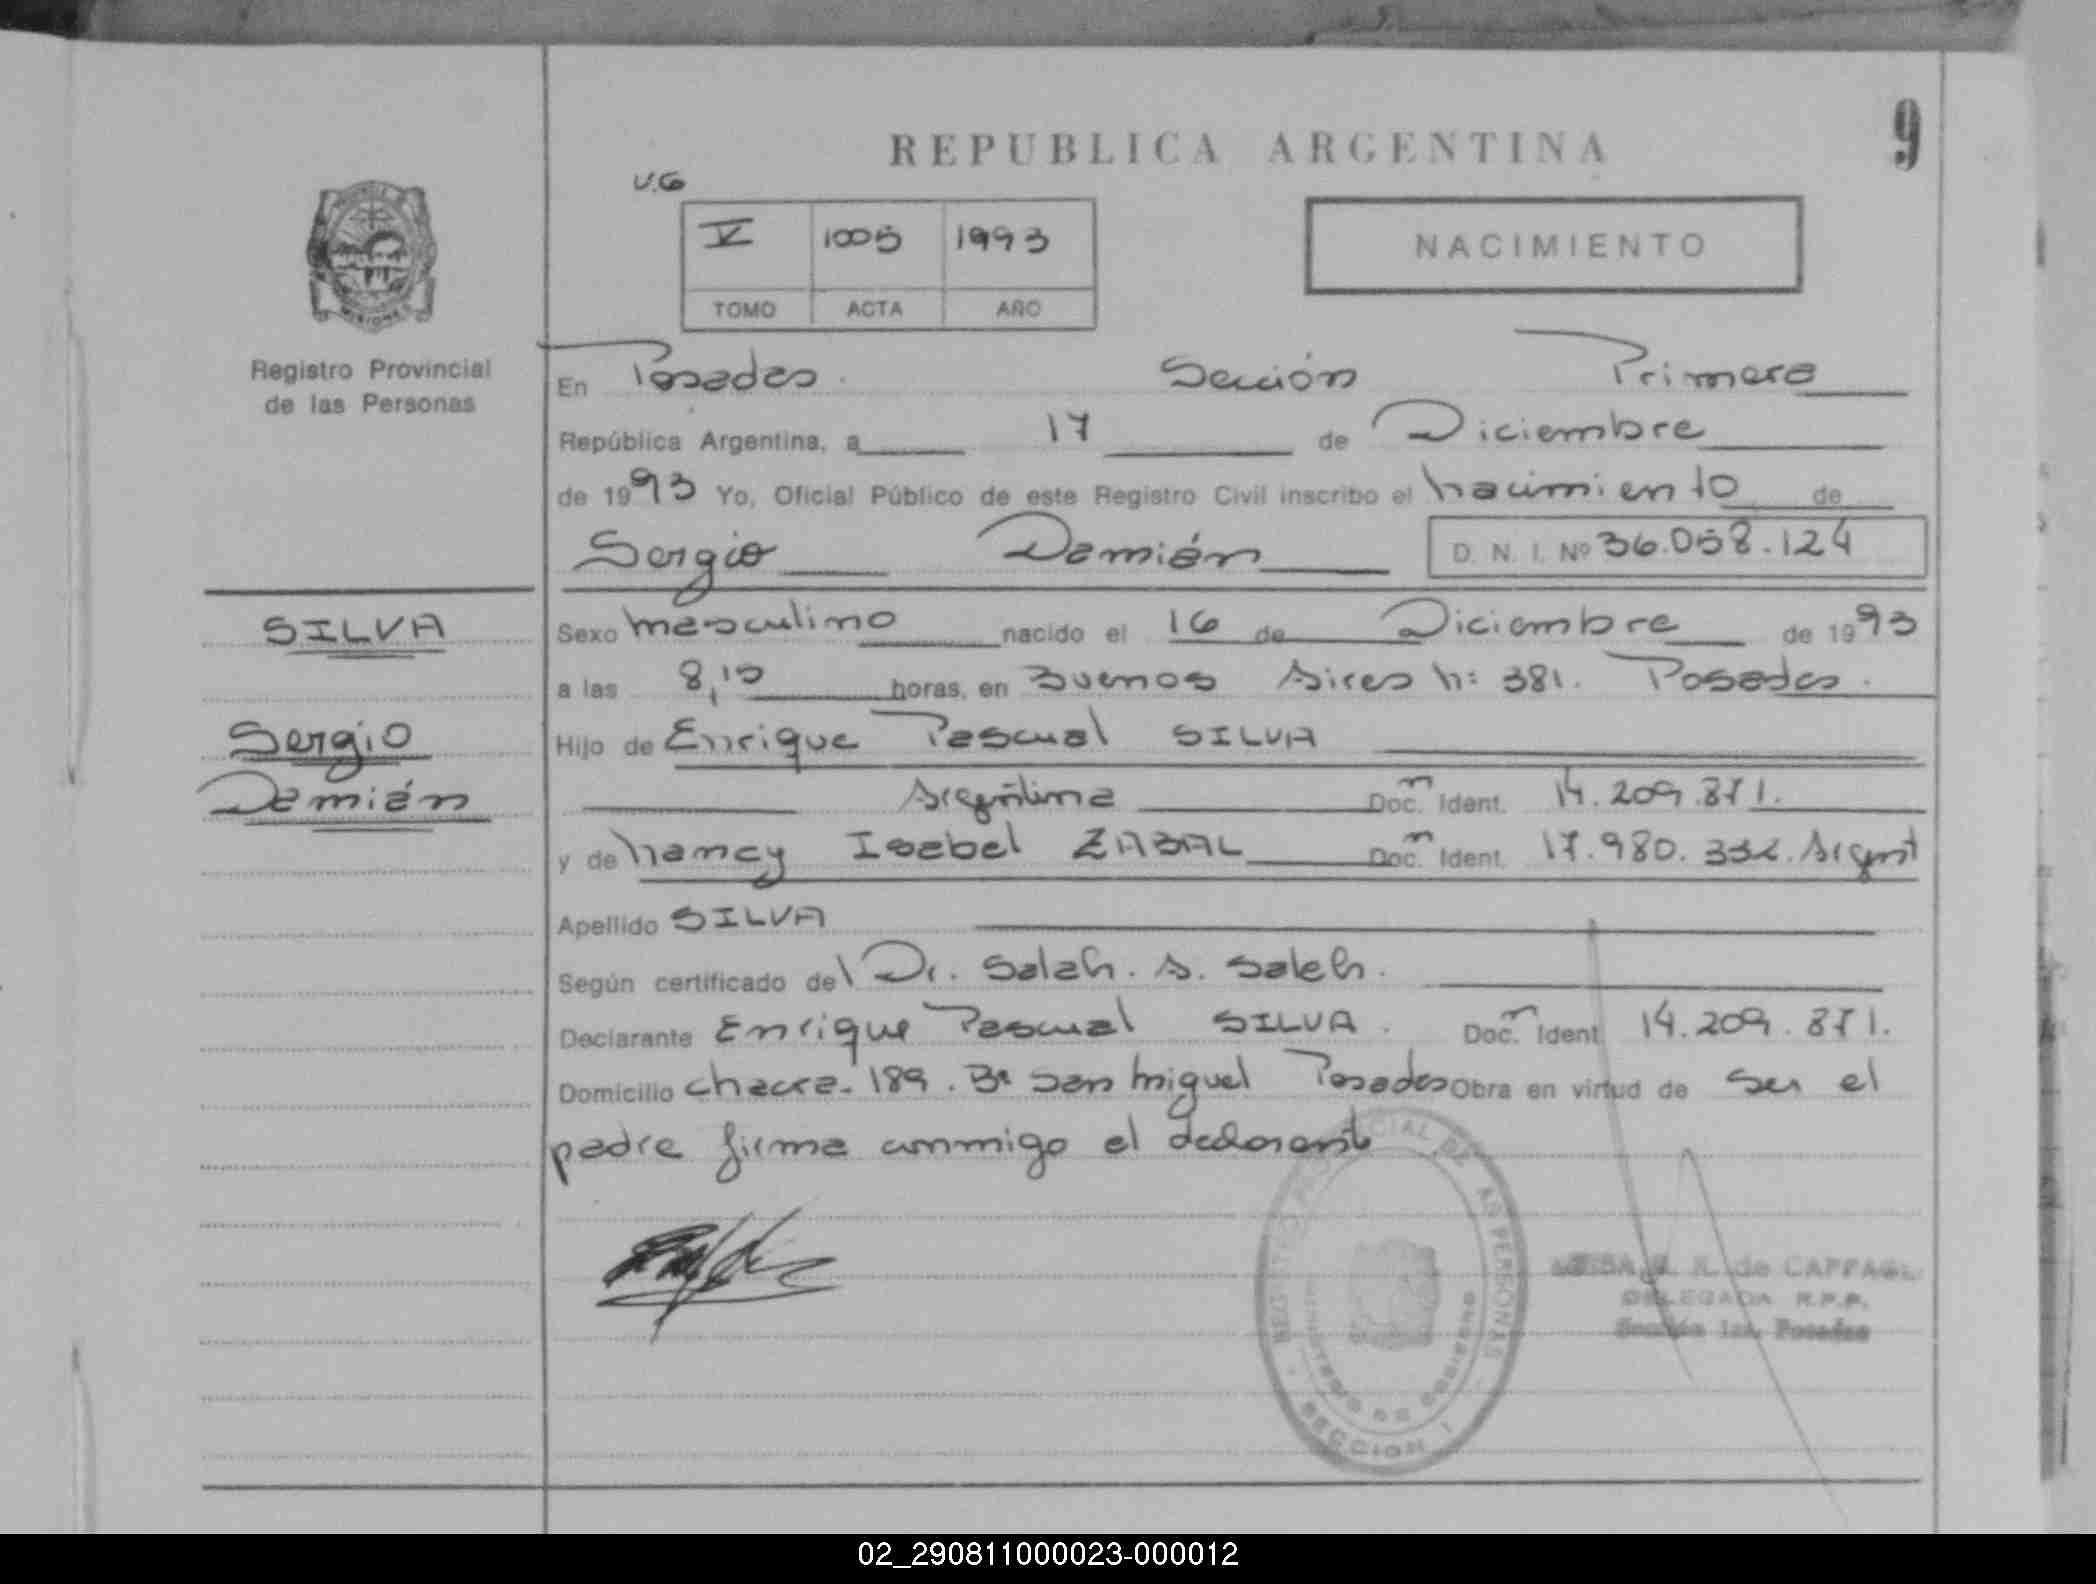 REPUBLICA ARGENTINA
9
U.G
V 1005 1993
TOMO ACTA AÑO
NACIMIENTO
MISIONES
Registro Provincial
de las Personas
En Posadas. Sección Primera
República Argentina, a 17 de Diciembre
de 1993 Yo, Oficial Público de este Registro Civil inscribo el nacimiento de
Sergio Damián D. N. I. Nº 36.058.124
SILVA
Sergio
Damián
Sexo masculino nacido el 16 de Diciembre de 1993
a las 8,15 horas, en Buenos Aires n: 381. Posadas.
Hijo de Enrique Pascual SILVA
Argentina Doc. Ident. 14.209.871.
y de Nancy Isabel ZABAL Doc. Ident. 17.980.332. Argent
Apellido SILVA
Según certificado del Dr. Saleh. A. Saleh.
Declarante Enrique Pascual SILVA. Doc. Ident 14.209.871.
Domicilio chacra. 189. Bº San Miguel Posadas Obra en virtud de ser el
padre firma conmigo el declarante
REGISTRO PROVINCIAL DE LAS PERSONAS
SECCION 1
de CAFFA
DELEGADA R.P.P.
Sección 1ra. Posadas
02_290811000023-000012